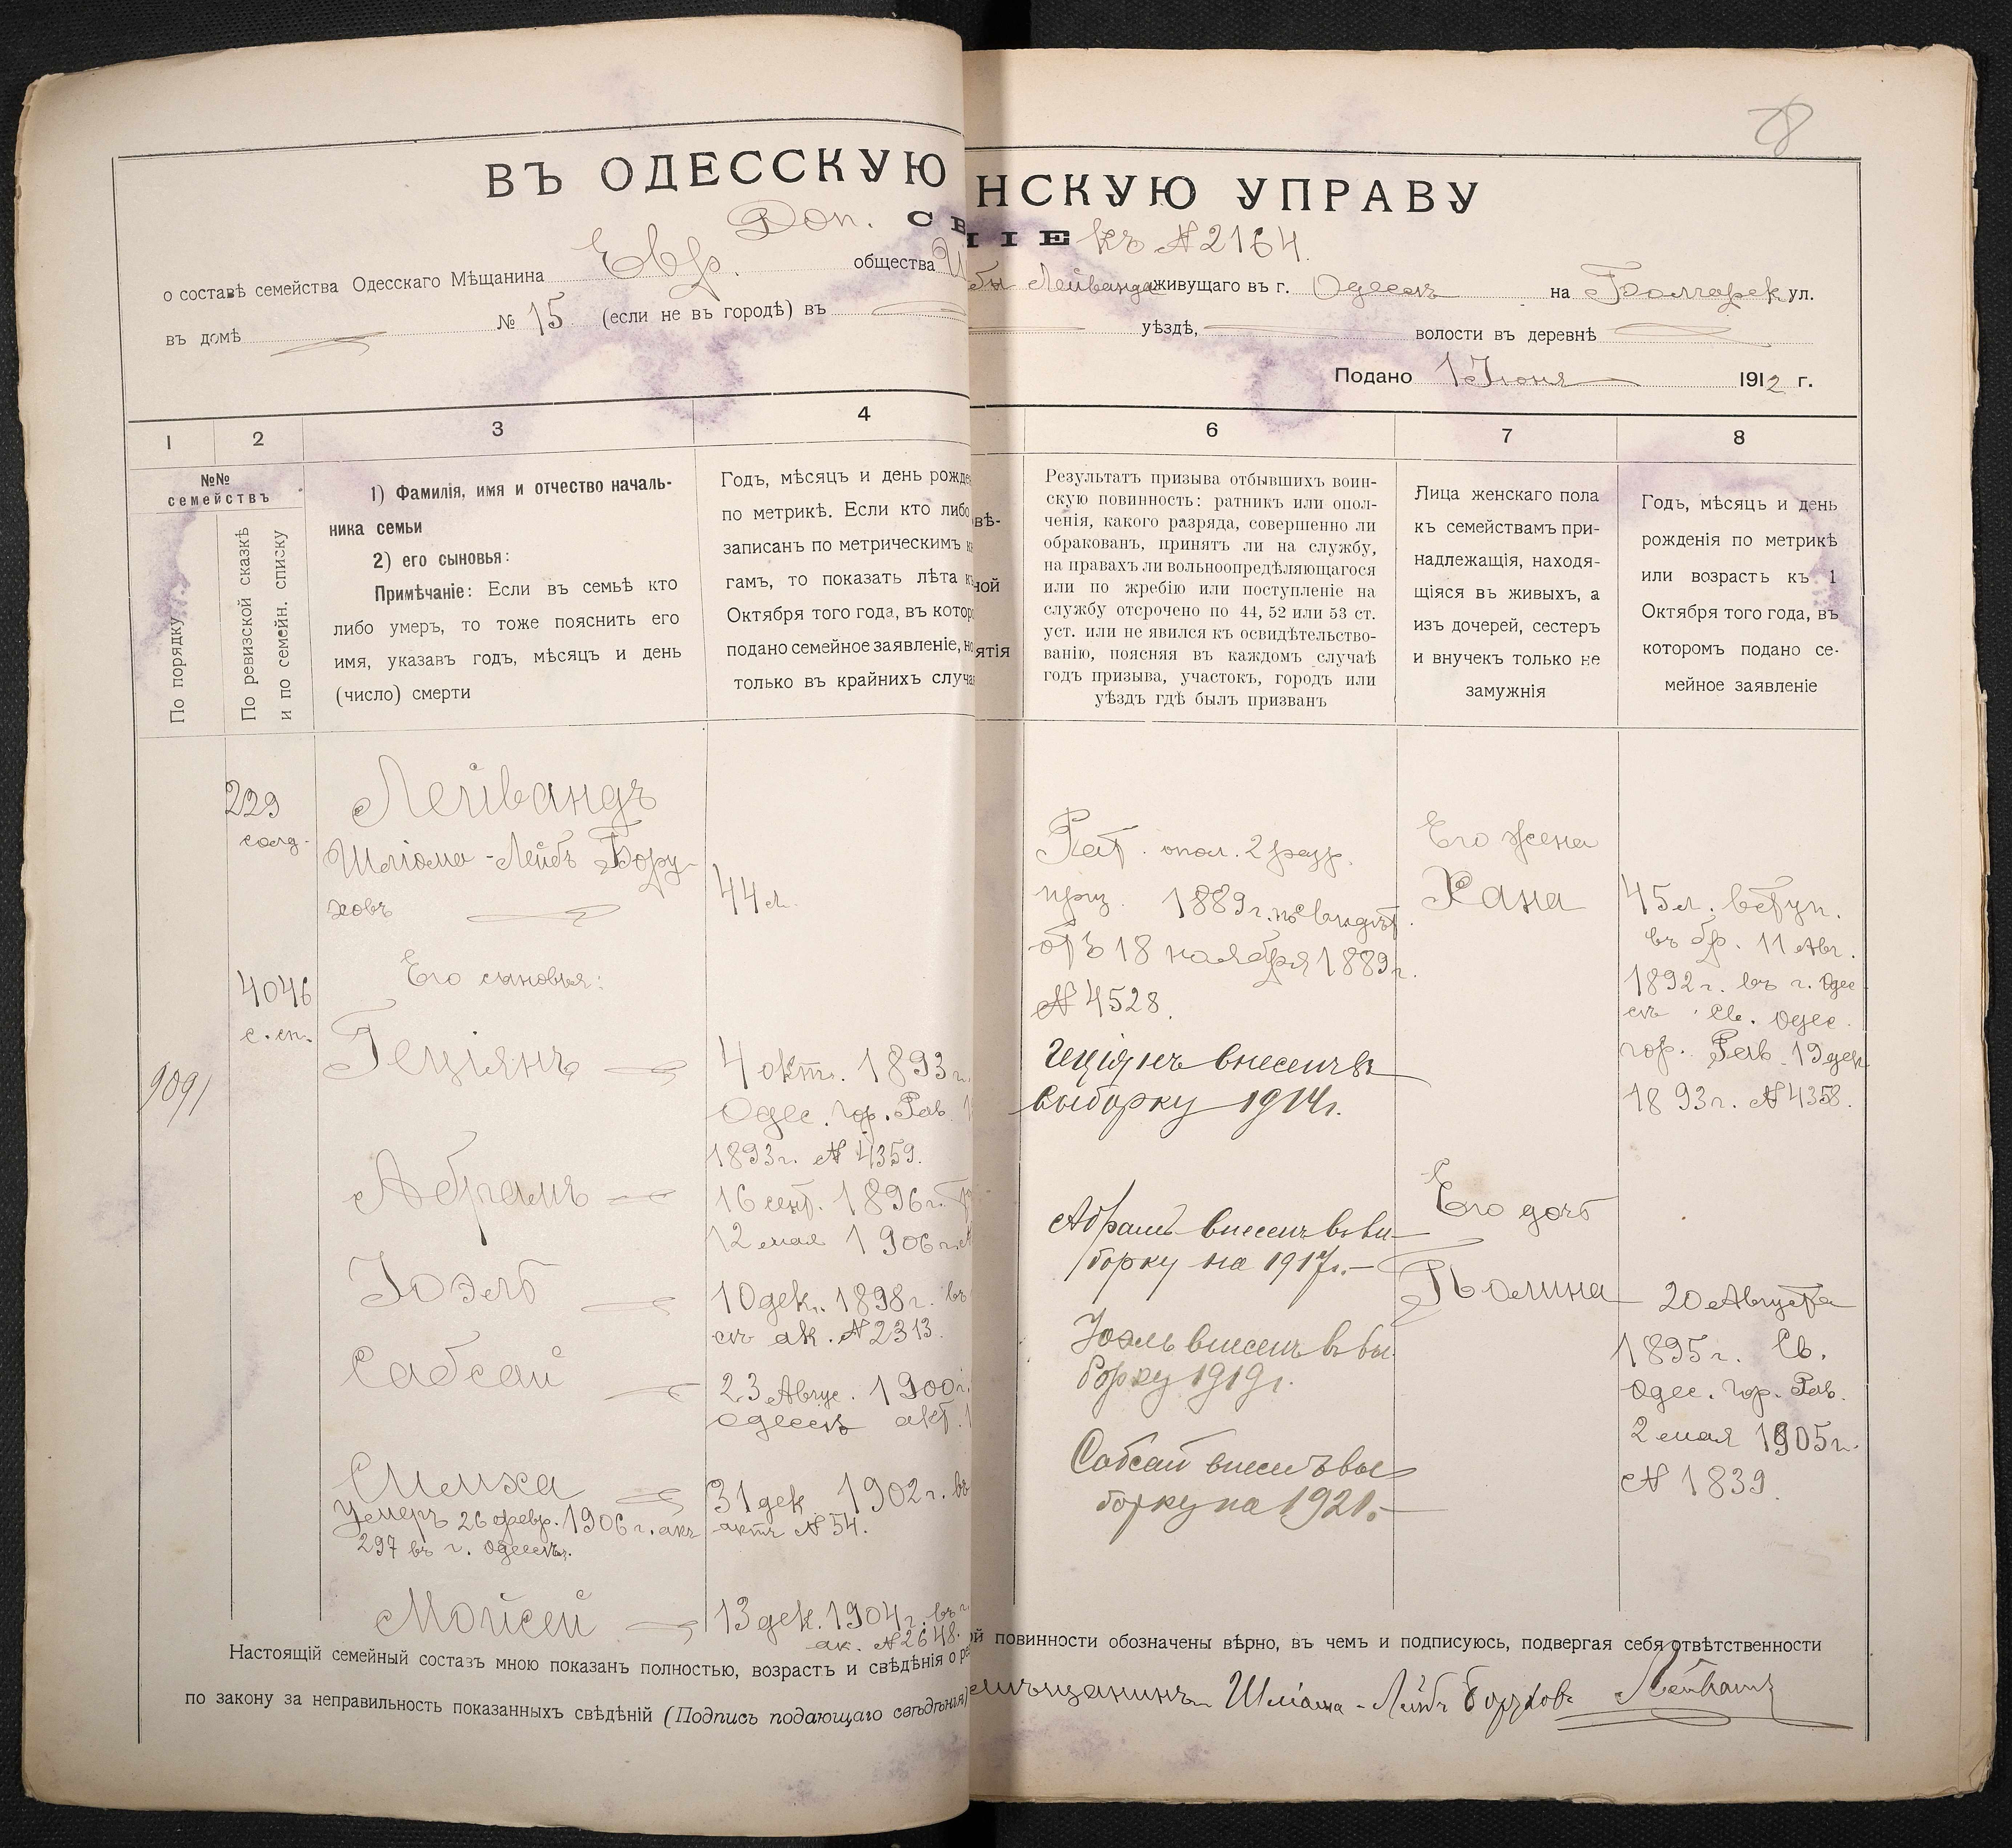 78
ВЪ ОДЕССКУЮ НСКУЮ УПРАВУ
Доп. СВ ІЕ къ № 2164.
о составѣ семейства Одесскаго Мѣщанина Евр. общества Ш бы Лейванда живущаго въ г. Одессѣ на Болгарск ул.
въ домѣ № 15 (если не въ городѣ) въ уѣздѣ, волости въ деревнѣ
Подано 1 Іюня 1912 г.
1 2 3 4 6 7 8
№№
семействъ
По порядку
По ревизской сказкѣ
и по семейн. списку
1) Фамилія, имя и отчество началь-
ника семьи
2) его сыновья:
Примѣчаніе: Если въ семьѣ кто
либо умеръ, то тоже пояснить его
имя, указавъ годъ, мѣсяцъ и день
(число) смерти
Годъ, мѣсяцъ и день рожде
по метрикѣ. Если кто либо
записанъ по метрическимъ к
гамъ, то показать лѣта к
Октября того года, въ котор
подано семейное заявленіе, но
только въ крайнихъ случа
вѣ-
ной
ятія
Результатъ призыва отбывшихъ воин-
скую повинность: ратникъ или опол-
ченія, какого разряда, совершенно ли
обракованъ, принятъ ли на службу,
на правахъ ли вольноопредѣляющагося
или по жребію или поступленіе на
службу отсрочено по 44, 52 или 53 ст.
уст. или не явился къ освидѣтельство-
ванію, поясняя въ каждомъ случаѣ
годъ призыва, участокъ, городъ или
уѣздъ гдѣ былъ призванъ
Лица женскаго пола
къ семействамъ при-
надлежащія, находя-
щіяся въ живыхъ, а
изъ дочерей, сестеръ
и внучекъ только не
замужнія
Годъ, мѣсяцъ и день
рожденія по метрикѣ
или возрастъ къ 1
Октября того года, въ
которомъ подано се-
мейное заявленіе
229
4046
с. сп.
9091
Лейвандъ
Шліома-Лейбъ Бору-
ховъ
Его сыновья:
Геціянъ
Абрамъ
Іоэль
Сабсай
Симха
Умеръ 26 февр. 1906 г. акт
297 въ г. Одессѣ.
Мойсей
44 л.
4 окт. 1893 г.
Одес. гор. Рав.
1893 г. № 4359.
16 сент. 1896 г.
12 мая 1906 г.
10 дек. 1898 г. въ
сѣ ак. № 2313.
23 Авгус. 1900 г.
Одессѣ акт.
31 дек. 1902 г. въ
актъ № 54.
13 дек. 1904 г. въ г.
ак. № 2648.
Рат. опол. 2 разр.
приз. 1889 г. по свидѣт.
отъ 18 ноября 1889 г.
№ 4528.
Геціянъ внесенъ въ
выборку 1914 г.
Абрамъ внесенъ въ вы-
борку на 1917 г.
Іоэль внесенъ въ вы-
борку 1919 г.
Сабсай внесенъ въ вы-
борку на 1921.
Его жена
Хана
Его дочь
Полина
45 л. вступ.
въ бр. 11 Авг.
1892 г. въ г. Одес-
сѣ Св. Одес.
гор. Рав. 19 дек
1893 г. № 4358.
20 Августа
1895 г. Св.
Одес. гор. Рав.
2 мая 1905 г.
№ 1839.
Настоящій семейный составъ мною показанъ полностью, возрастъ и свѣдѣнія о р ой повинности обозначены вѣрно, въ чемъ и подписуюсь, подвергая себя отвѣтственности
по закону за неправильность показанныхъ свѣдѣній (Подпись подающаго свѣдѣнія) мѣщанинъ Шліома-Лейбъ Борухов Лейванд